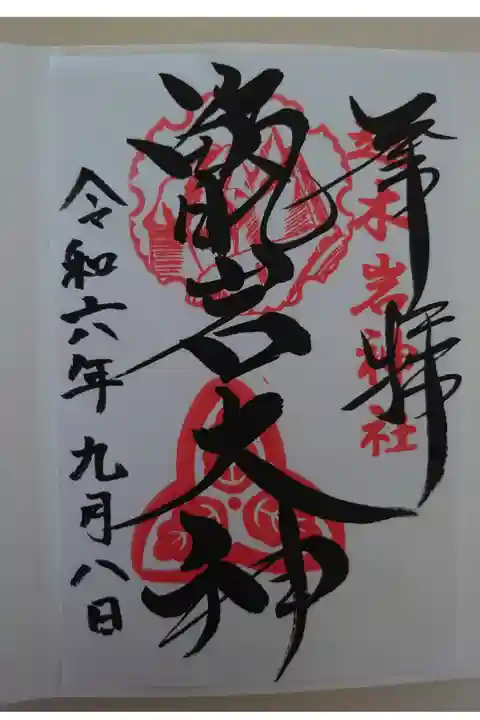 奉拝
木岩神社
岩大神
令和六年九月八日